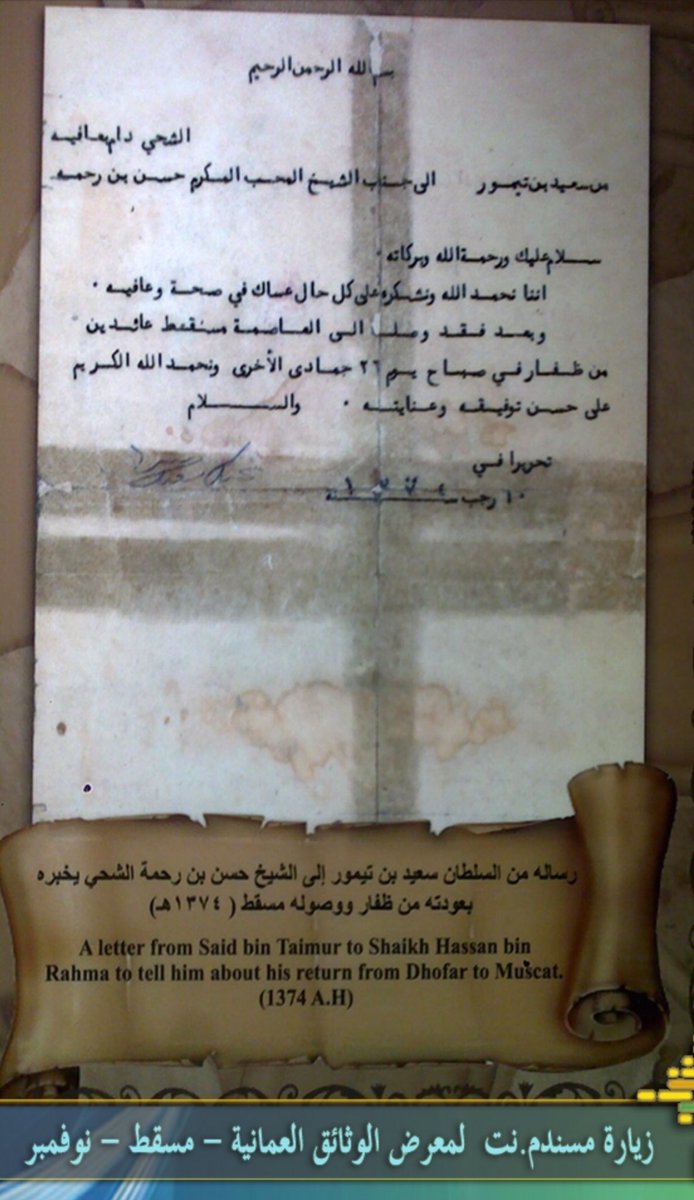 بسم الله الرحمن الرحيم
الشحي دام بعافيه
من سعيد بن تيمور الى جناب الشيخ المحب المكرم حسن بن رحمه
سلام عليك ورحمة الله وبركاته ٠
اننا نحمد الله ونشكره على كل حال عساك في صحة وعافيه ٠
وبعد فقد وصلنا الى العاصمة مسقط عائدين
من ظفار في صباح يوم ٢٦ جمادى الأخرى ونحمد الله الكريم
على حسن توفيقه وعنايته ٠ والسلام
تحريرا في
١٠ رجب سنة ١٣٧٤
رساله من السلطان سعيد بن تيمور إلى الشيخ حسن بن رحمة الشحي يخبره
بعودته من ظفار ووصوله مسقط ( ١٣٧٤هـ)
A letter from Said bin Taimur to Shaikh Hassan bin
Rahma to tell him about his return from Dhofar to Muscat.
(1374 A.H)
زيارة مسندم.نت لمعرض الوثائق العمانية – مسقط – نوفمبر